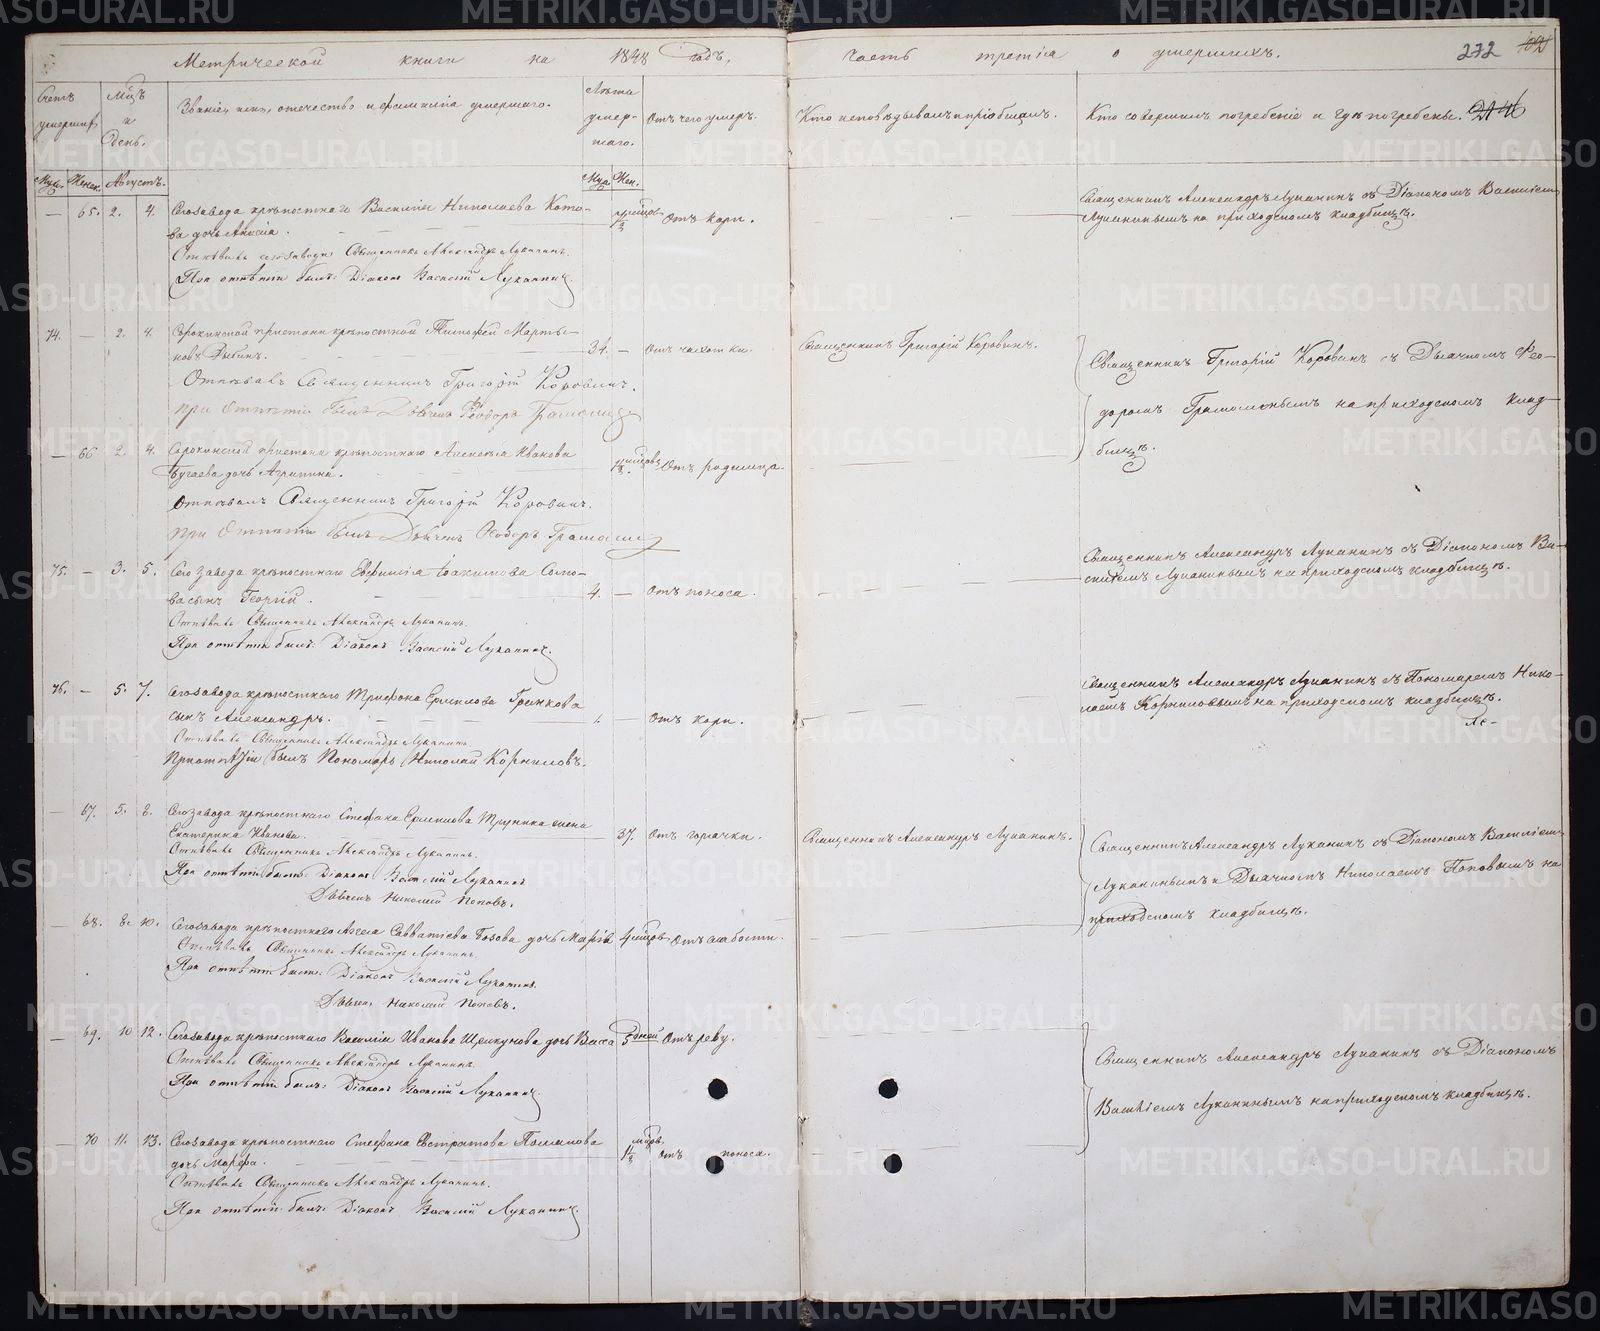 Метрической книги на 1848 годъ, часть третія о умершихъ.
272
Счетъ умершихъ
Мцъ и день.
Званіе, имя, отечество и фамилія умершаго.
Лѣта умер-
шаго.
Отъ чего умеръ.
Кто исповѣдывалъ и пріобщалъ.
Кто совершилъ погребеніе и гдѣ погребены.
Муж. Женск. Августъ. Муж. Жен.
— 65. 2. 4. Сегозавода крѣпостнаго Василія Николаева Кото-
ва дочь Анисія. Отъ кори.
Священникъ Александръ Луканинъ съ Діакономъ Василіемъ
Луканинымъ на приходскомъ кладбищѣ.
Отпѣвалъ Священникъ Александръ Луканинъ.
При отпѣтіи былъ: Діаконъ Василій Луканинъ.
74. — 2. 4. Сорокинской пристани крѣпостной Тимофей Марты-
новъ 34. — Отъ чахотки. Священникъ Григорій Коровинъ.
Отпѣвалъ Священникъ Григорій Коровинъ.
при Отпѣтіи былъ Дьячекъ Ѳеодоръ
Священникъ Григорій Коровинъ съ Дьячкомъ Ѳео-
доромъ на приходскомъ клад-
бищѣ.
— 66 2. 4. Сорокинской пристани крѣпостнаго Алексѣя Иванова
Бугаева дочь Агрипина. Отъ родимца.
Отпѣвалъ Священникъ Григорій Коровинъ.
при Отпѣтіи былъ Дьячекъ Ѳеодоръ
75. — 3. 5. Сего завода крѣпостнаго Евфимія Іоакимова Соло-
ва сынъ Георгій. 4. — Отъ поноса.
Священникъ Александръ Луканинъ съ Діакономъ Ва-
силіемъ Луканинымъ на приходскомъ кладбищѣ.
Отпѣвалъ Священникъ Александръ Луканинъ.
При отпѣтіи былъ: Діаконъ Василій Луканинъ.
76. — 5. 7. Сегозавода крѣпостнаго Трифона Ермилова
сынъ Александръ. — Отъ кори.
Священникъ Александръ Луканинъ съ Пономаремъ Нико-
лаемъ Корниловымъ на приходскомъ кладбищѣ.
Отпѣвалъ Священникъ Александръ Луканинъ
При отпѣтіи былъ Пономарь Николай Корниловъ.
— 67. 5. 8. Сегозавода крѣпостнаго Стефана Ермилова жена
Екатерина Иванова. 37. Отъ горячки. Священникъ Александръ Луканинъ.
Отпѣвалъ Священникъ Александръ Луканинъ.
При отпѣтіи былъ: Діаконъ Василій Луканинъ
Дьячекъ Николай Поповъ.
Священникъ Александръ Луканинъ съ Діакономъ Василіемъ
Луканинымъ и Дьячкомъ Николаемъ Поповымъ на
приходскомъ кладбищѣ.
— 68. 8. 10. Сегозавода крѣпостнаго Савватіева дочь Марія 4 мцовъ Отъ слабости.
Отпѣвалъ Священникъ Александръ Луканинъ.
При отпѣтіи былъ: Діаконъ Василій Луканинъ.
Дьячекъ Николай Поповъ.
— 69. 10 12. Сегозавода крѣпостнаго Василія Иванова Щелкунова дочь Васса 5 дней Отъ реву.
Отпѣвалъ Священникъ Александръ Луканинъ.
При отпѣтіи былъ: Діаконъ Василій Луканинъ.
Священникъ Александръ Луканинъ съ Діакономъ
Василіемъ Луканинымъ на приходскомъ кладбищѣ.
— 70 11. 13. Сегозавода крѣпостнаго Стефана Евстратова
дочь Марфа. Отъ поноса.
Отпѣвалъ Священникъ Александръ Луканинъ.
При отпѣтіи былъ: Діаконъ Василій Луканинъ.
METRIKI.GASO-URAL.RU